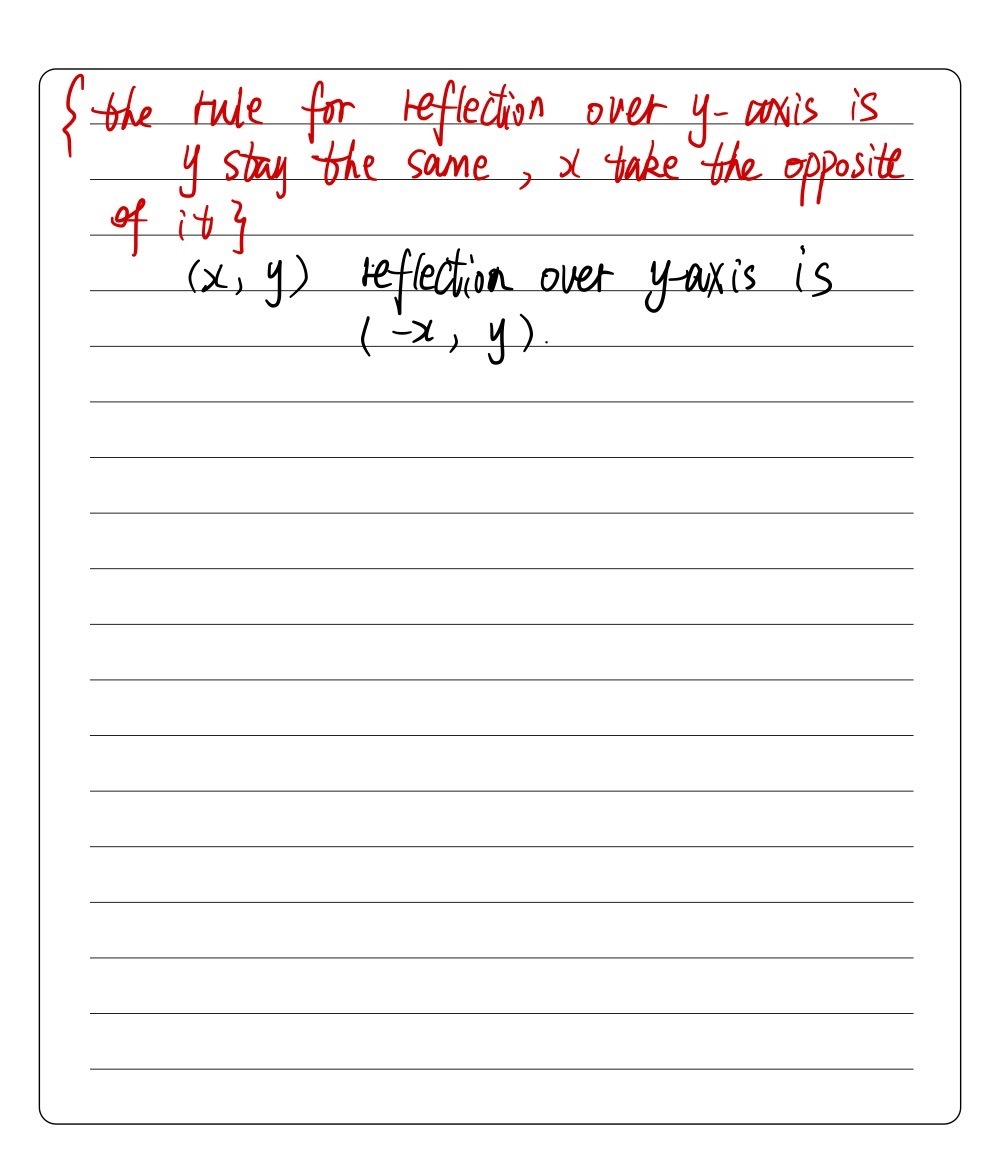 {the rule for reflection over y-axis is
y stay the same, x take the opposite
of it}
(x, y) reflection over y-axis is
(-x, y).